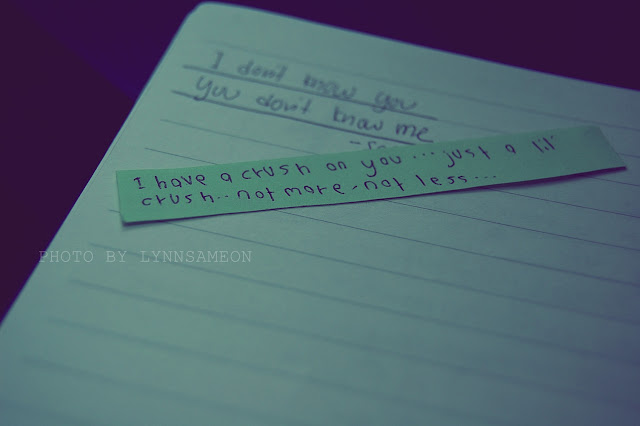 I don't know you
You don't know me
I have a crush on you.... just a lil'
crush.. not more - not less...
PHOTO BY LYNNSAMEON